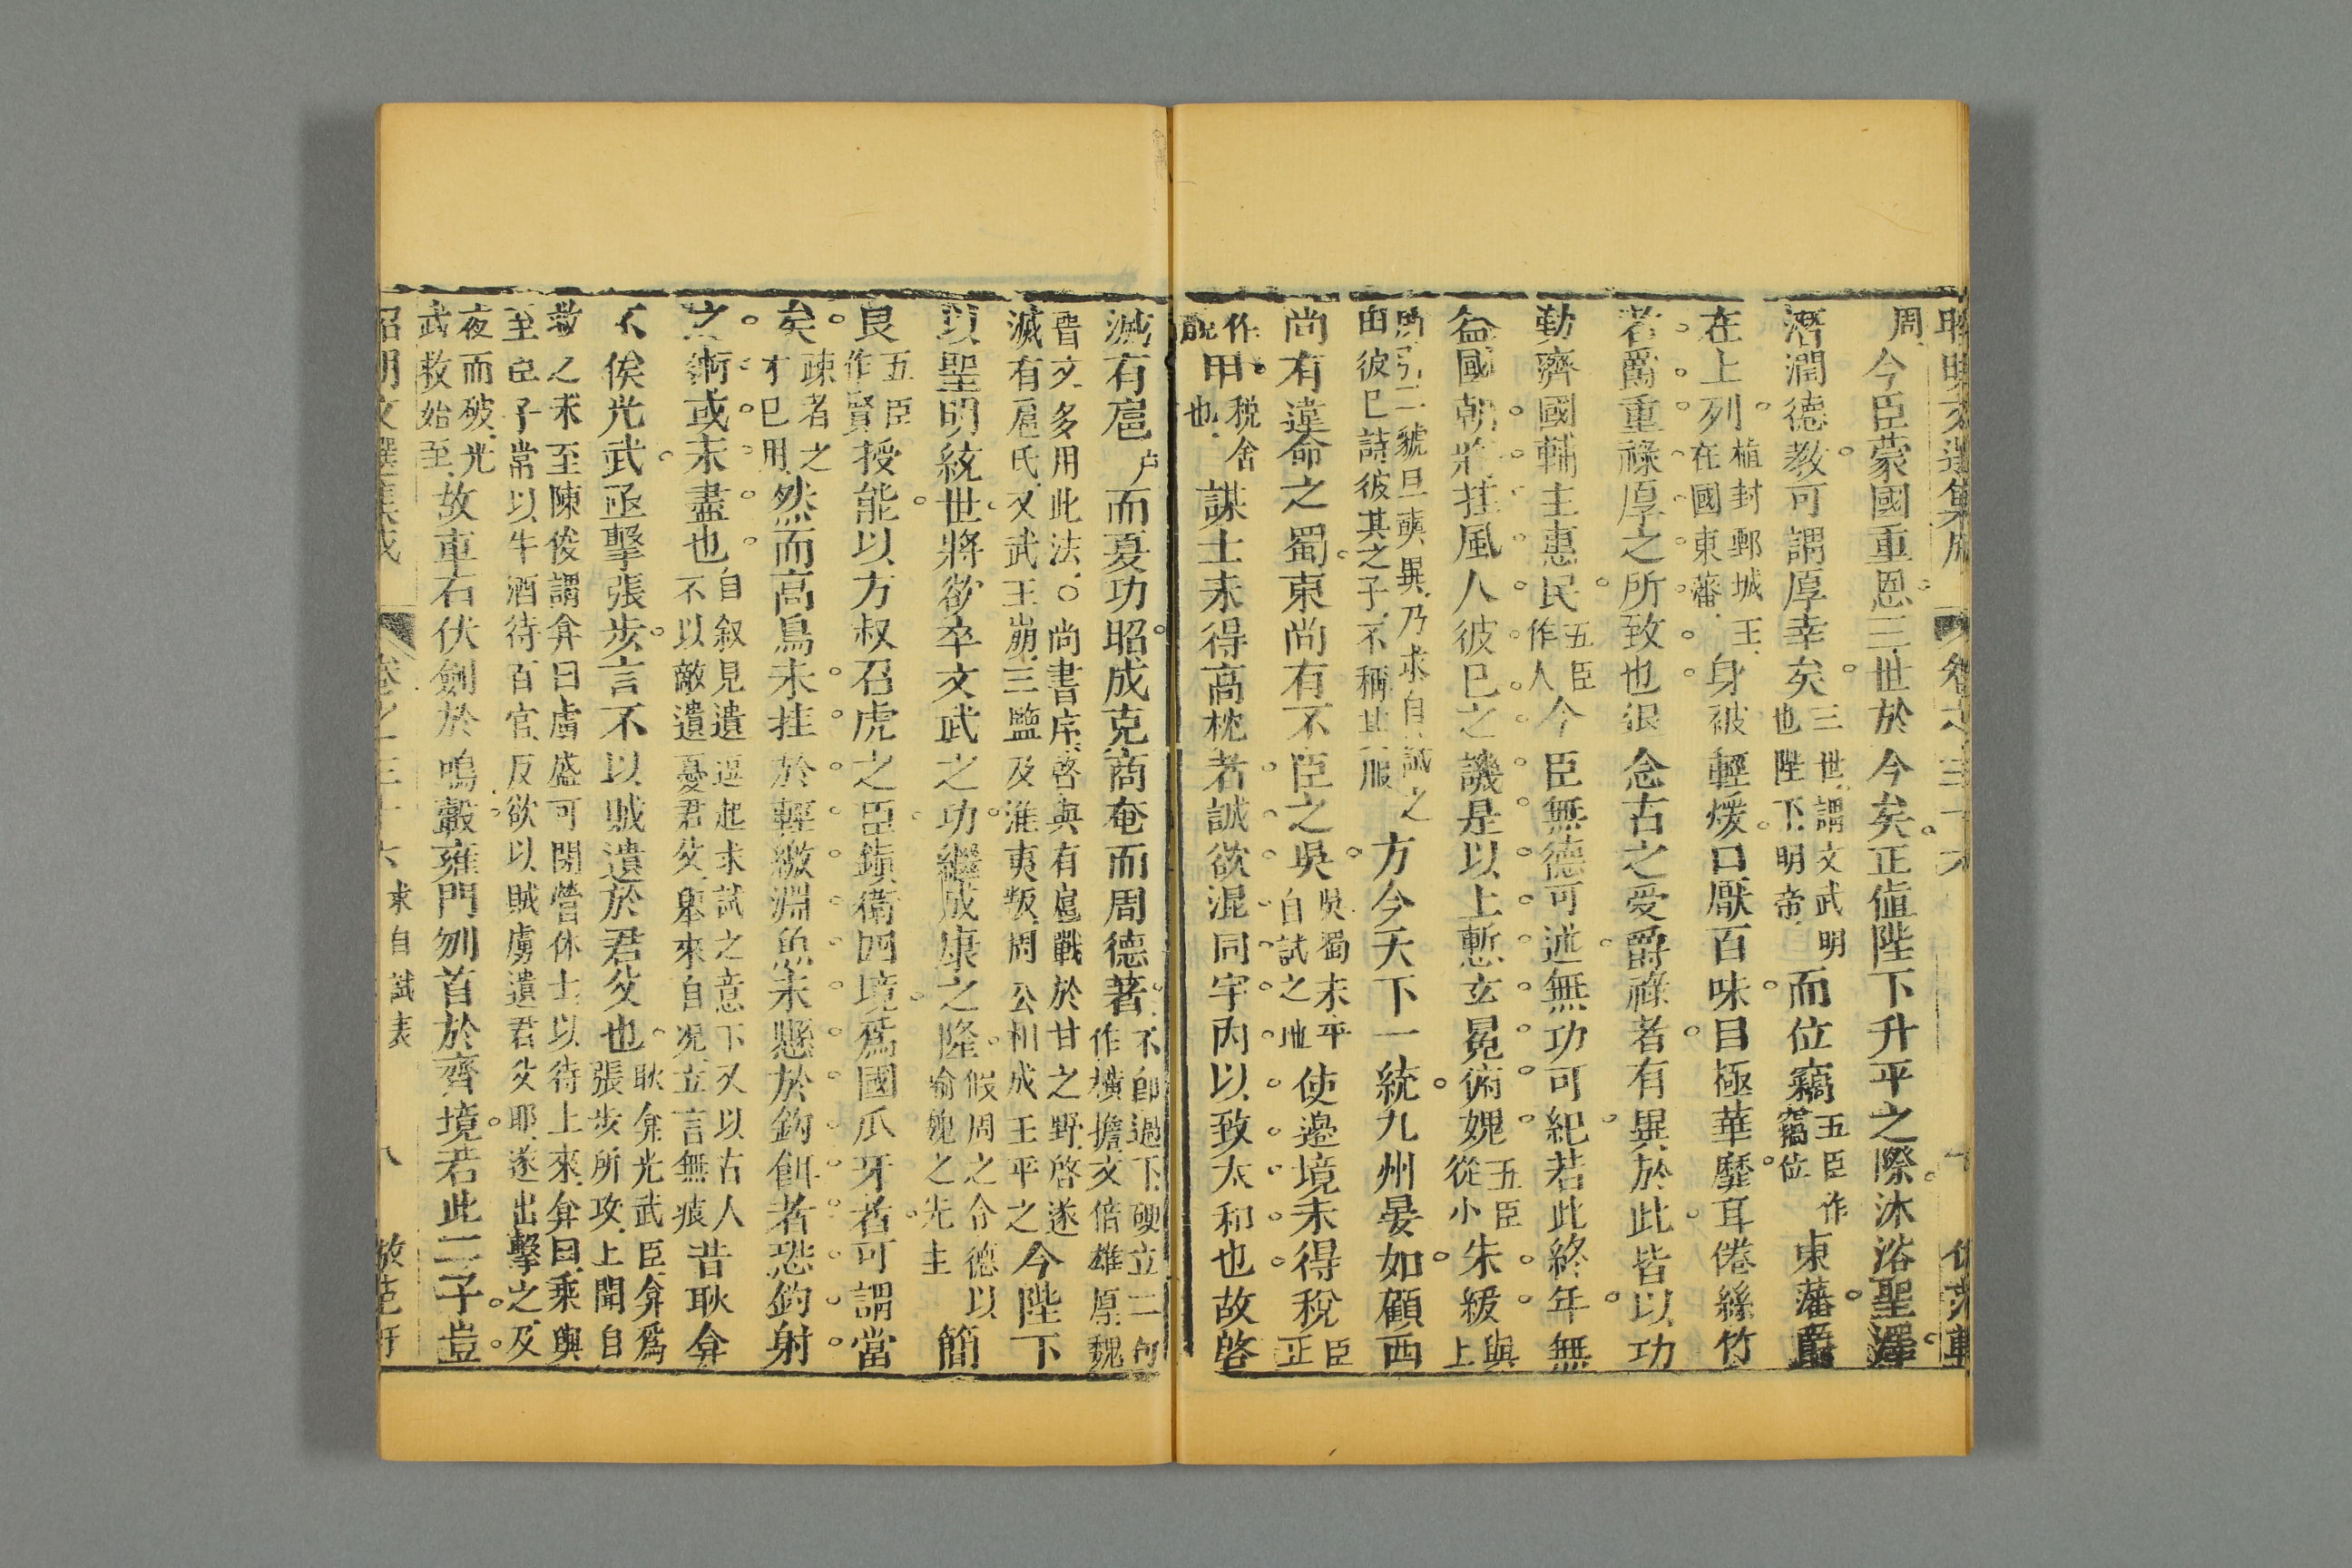 昭明文選集成 卷之三十六
周今臣蒙國重恩三世於今矣正値陛下升平之際沐浴聖澤
潛潤德教可謂厚幸矣三世謂文武明也陛下明帝而位竊五臣作竊位東藩爵
在上列植封鄄城王在國東藩身被輕煖口厭百味目極華靡耳倦絲竹
者爵重祿厚之所致也退念古之受爵祿者有異於此皆以功
勤濟國輔主惠民五臣作人今臣無德可述無功可紀若此終年無
益國朝將挂風人彼已之譏是以上慙玄冕俯媿五臣從小朱紱與上
所引二虢旦奭異乃求自試之由彼已詩彼其之子不稱其服方今天下一統九州晏如顧西
尚有違命之蜀東尚有不臣之吳吳蜀未平自試之地使邊境未得稅臣正
作脫甲稅舍也謀士未得高枕者誠欲混同宇內以致太和也故啓
滅有扈户而夏功昭成克商奄而周德著不卽過下硬立二句作橫擔文倍雄厚魏
晉文多用此法○尚書序啓與有扈戰於甘之野啓遂滅有扈氏又武王崩三監及淮夷叛周公相成王平之今陛下
以聖明統世將欲卒文武之功繼成康之隆假周之令德以喻魏之先主簡
良五臣作賢授能以方叔召虎之臣鎮衛四境爲國爪牙者可謂當
矣疎者之才已用然而高鳥未挂於輕繳淵魚未懸於鈎餌者恐釣射
之術或未盡也自叙見遺逗起求試之意下又以古人不以敵遺憂君父舉來自况立言無痕昔耿弇
不俟光武亟擊張步言不以賊遺於君父也耿弇光武臣弇爲張步所攻上聞自
救之未至陳俊謂弇曰虜盛可閉營休士以待上來弇曰乘輿至臣子當以牛酒待百官反欲以賊虜遺君父耶遂出擊之及
夜而破光武救始至故車右伏劍於鳴轂雍門刎首於齊境若此二子豈
昭明文選集成 卷之三十六 求自試表 八